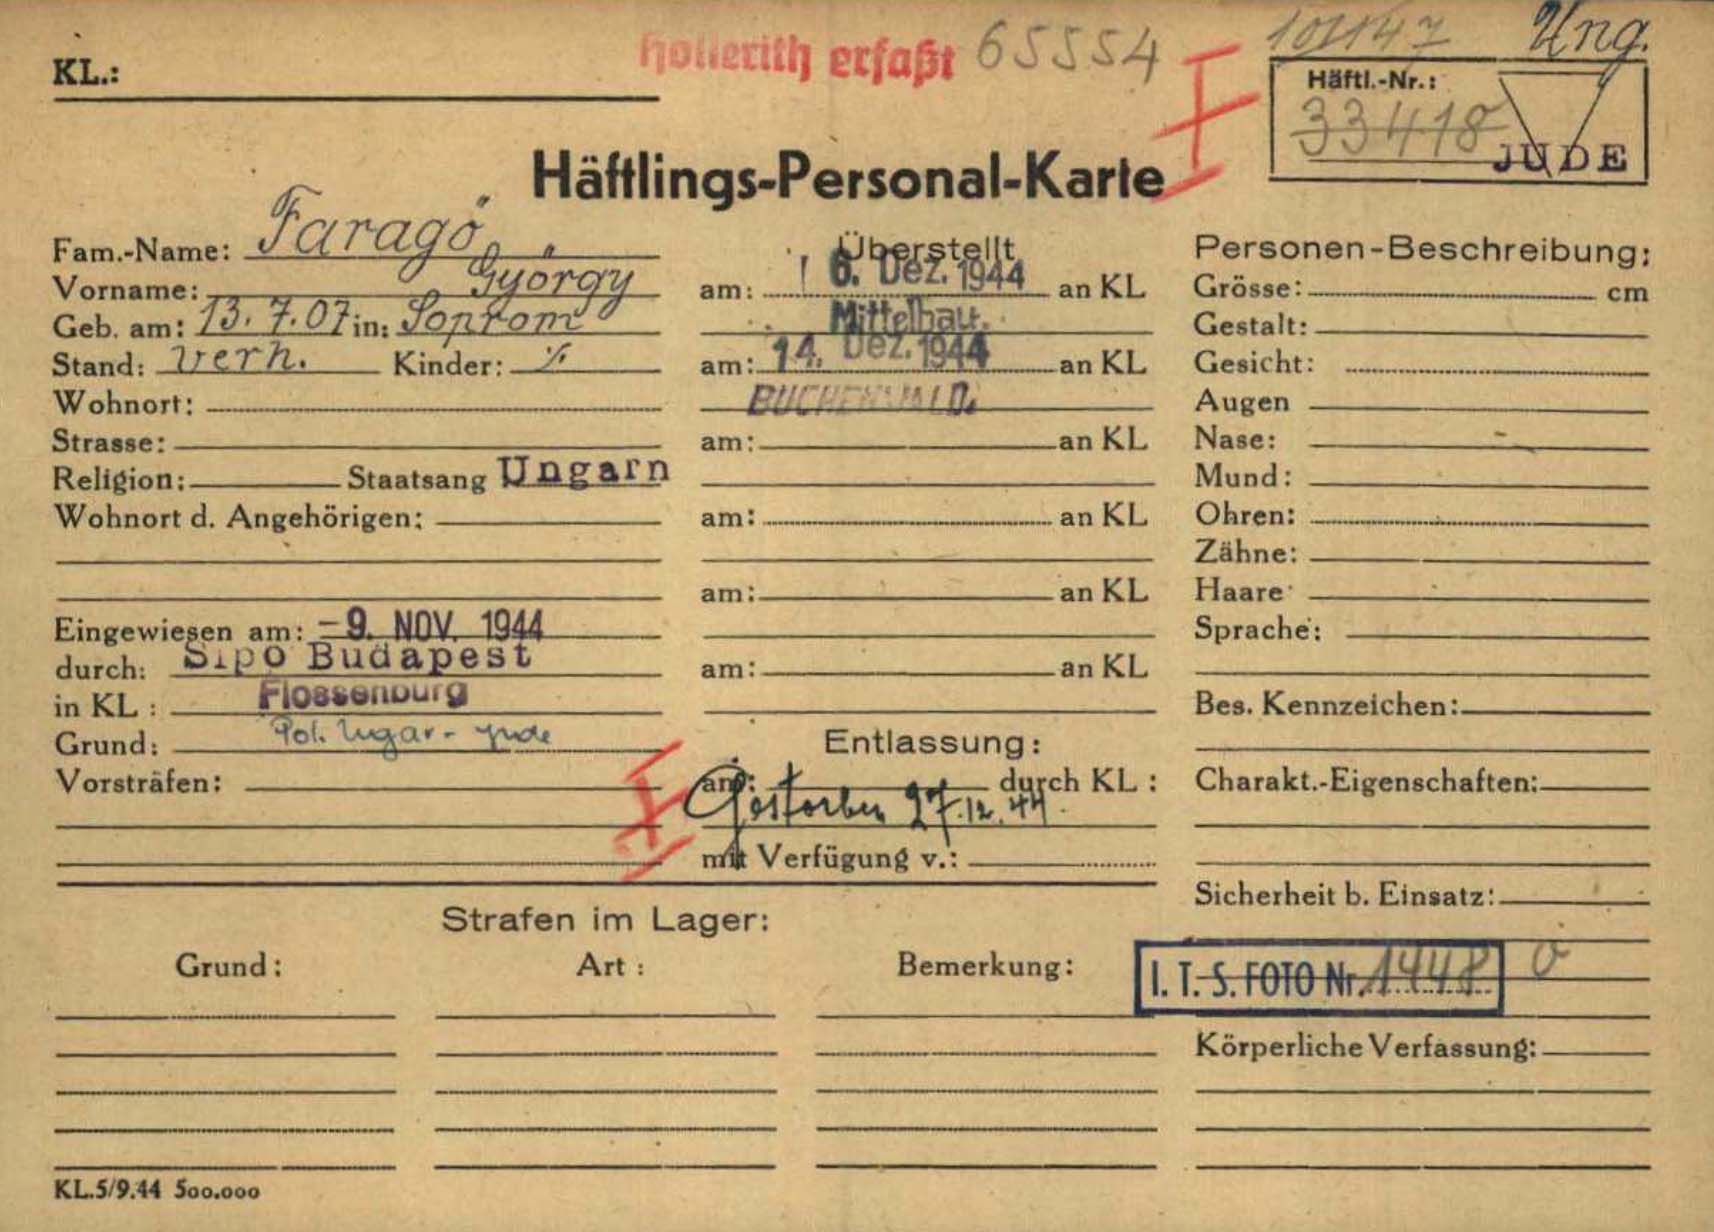 KL.:
Hollerith erfaßt 65554
Ung.
Häftl.-Nr.:
33418
JUDE
Häftlings-Personal-Karte
Fam.-Name: Faragó
Vorname: György
Geb. am: 13. 7. 07 in: Soprom
Stand: verh. Kinder: ./.
Wohnort:
Strasse:
Religion: Staatsang Ungarn
Wohnort d. Angehörigen:
Eingewiesen am: -9. NOV. 1944
durch: Sipo Budapest
in KL : Flossenburg
Grund: Pol. Ungar- Jude
Vorsträfen:
Überstellt
am: 6. Dez. 1944 an KL
Mittelbau.
am: 14. Dez. 1944 an KL
BUCHENWALD.
am: an KL
am: an KL
am: an KL
am: an KL
Entlassung:
am: durch KL :
Gestorben 27.12.44.
mit Verfügung v.:
Personen-Beschreibung:
Grösse: cm
Gestalt:
Gesicht:
Augen
Nase:
Mund:
Ohren:
Zähne:
Haare
Sprache:
Bes. Kennzeichen:
Charakt.-Eigenschaften:
Sicherheit b. Einsatz:
I. T. S. FOTO Nr. 1448
Körperliche Verfassung:
Strafen im Lager:
Grund: Art : Bemerkung:
KL.5/9.44 500.000